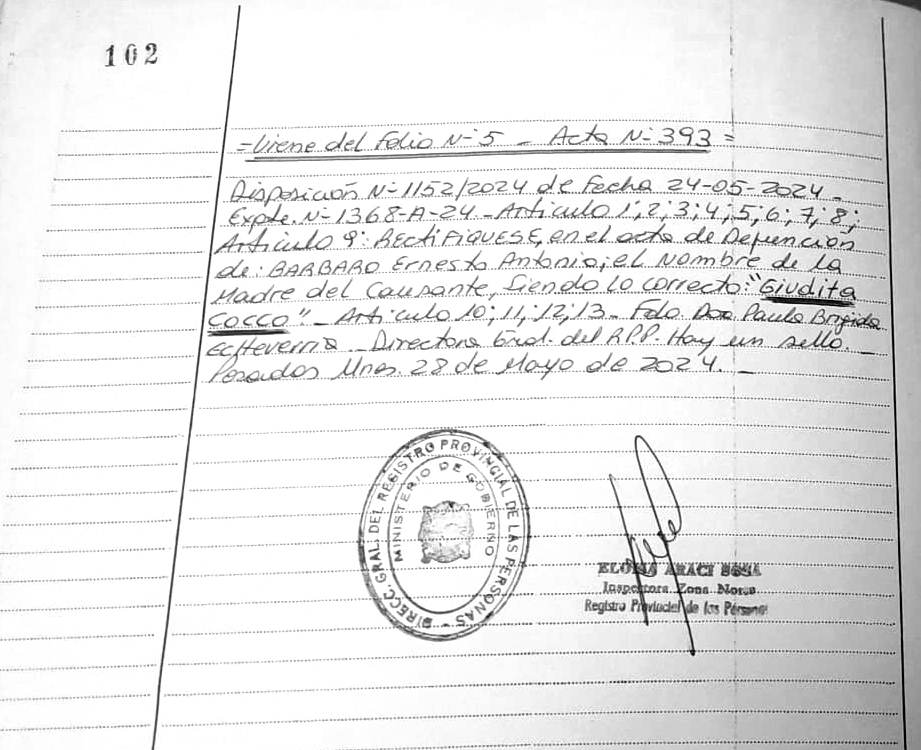 102
=Viene del Folio Nº 5 - Acta Nº 393=
Disposición Nº 1152/2024 de Fecha 24-05-2024.-
Expte. Nº 1368-A-24.- Artículo 1; 2; 3; 4; 5; 6; 7; 8;
Artículo 9: RECTIFIQUESE, en el acta de Defunción
de: BARBARO Ernesto Antonio; el Nombre de la
Madre del Causante, siendo lo correcto: "Giudita
COCCO".- Artículo 10; 11; 12; 13.- Fdo. Dra Paula Brigida
Echeverria.- Directora Gral. del RPP. Hay un sello.-
Posadas Mnes. 28 de Mayo de 2024.-
DIRECC. GRAL. DEL REGISTRO PROVINCIAL DE LAS PERSONAS -
MINISTERIO DE GOBIERNO
ARACI SOSA
Inspectora Zona Norte
Registro Provincial de las Personas